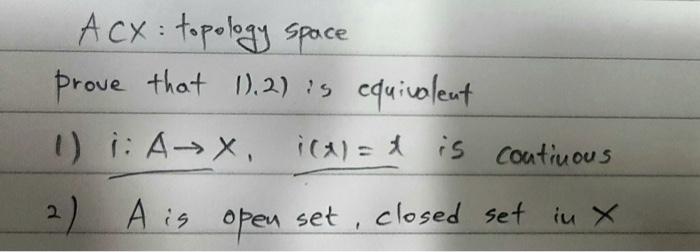 A⊂X : topology space
prove that 1). 2) is equivalent
1) i: A→X, i(x)=x is continous
2) A is open set, closed set in X